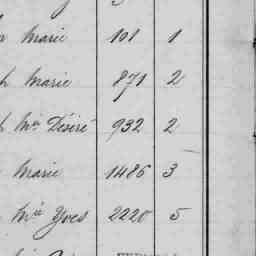 Marie 101 1
Marie 871 2
Mie Désiré 932 2
Marie 1486 3
Mie Yves 2220 5